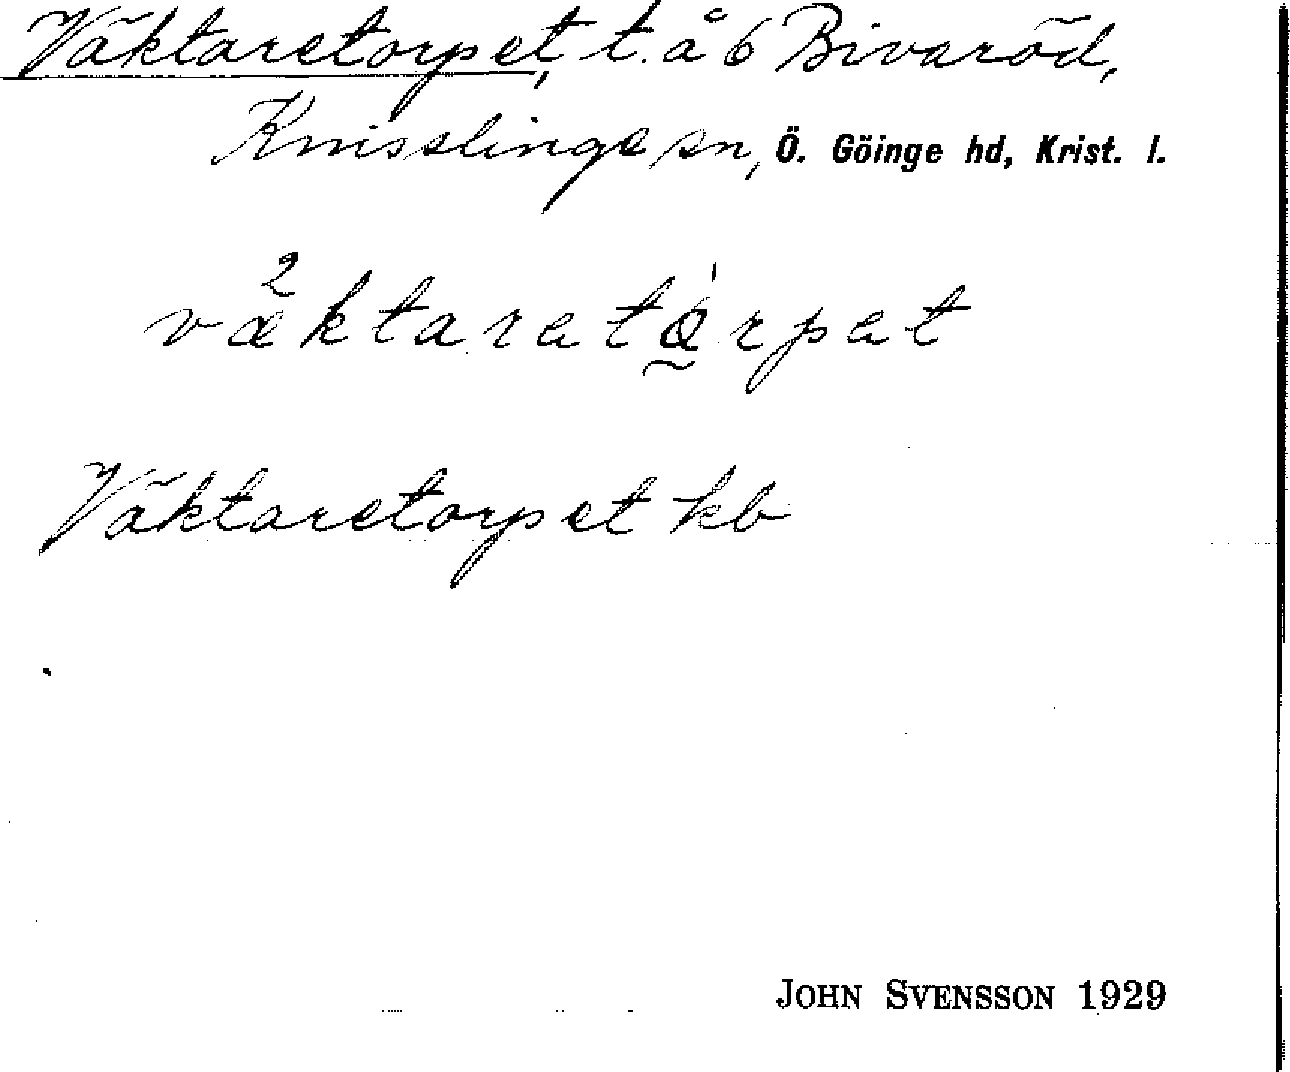 Väktaretorpet, t. å 6 Bivaröd,
Knisslinge sn, Ö. Göinge hd, Krist. l.
væ²ktaretå̰'rpet
Väktaretorpet kb
JOHN SVENSSON 1929